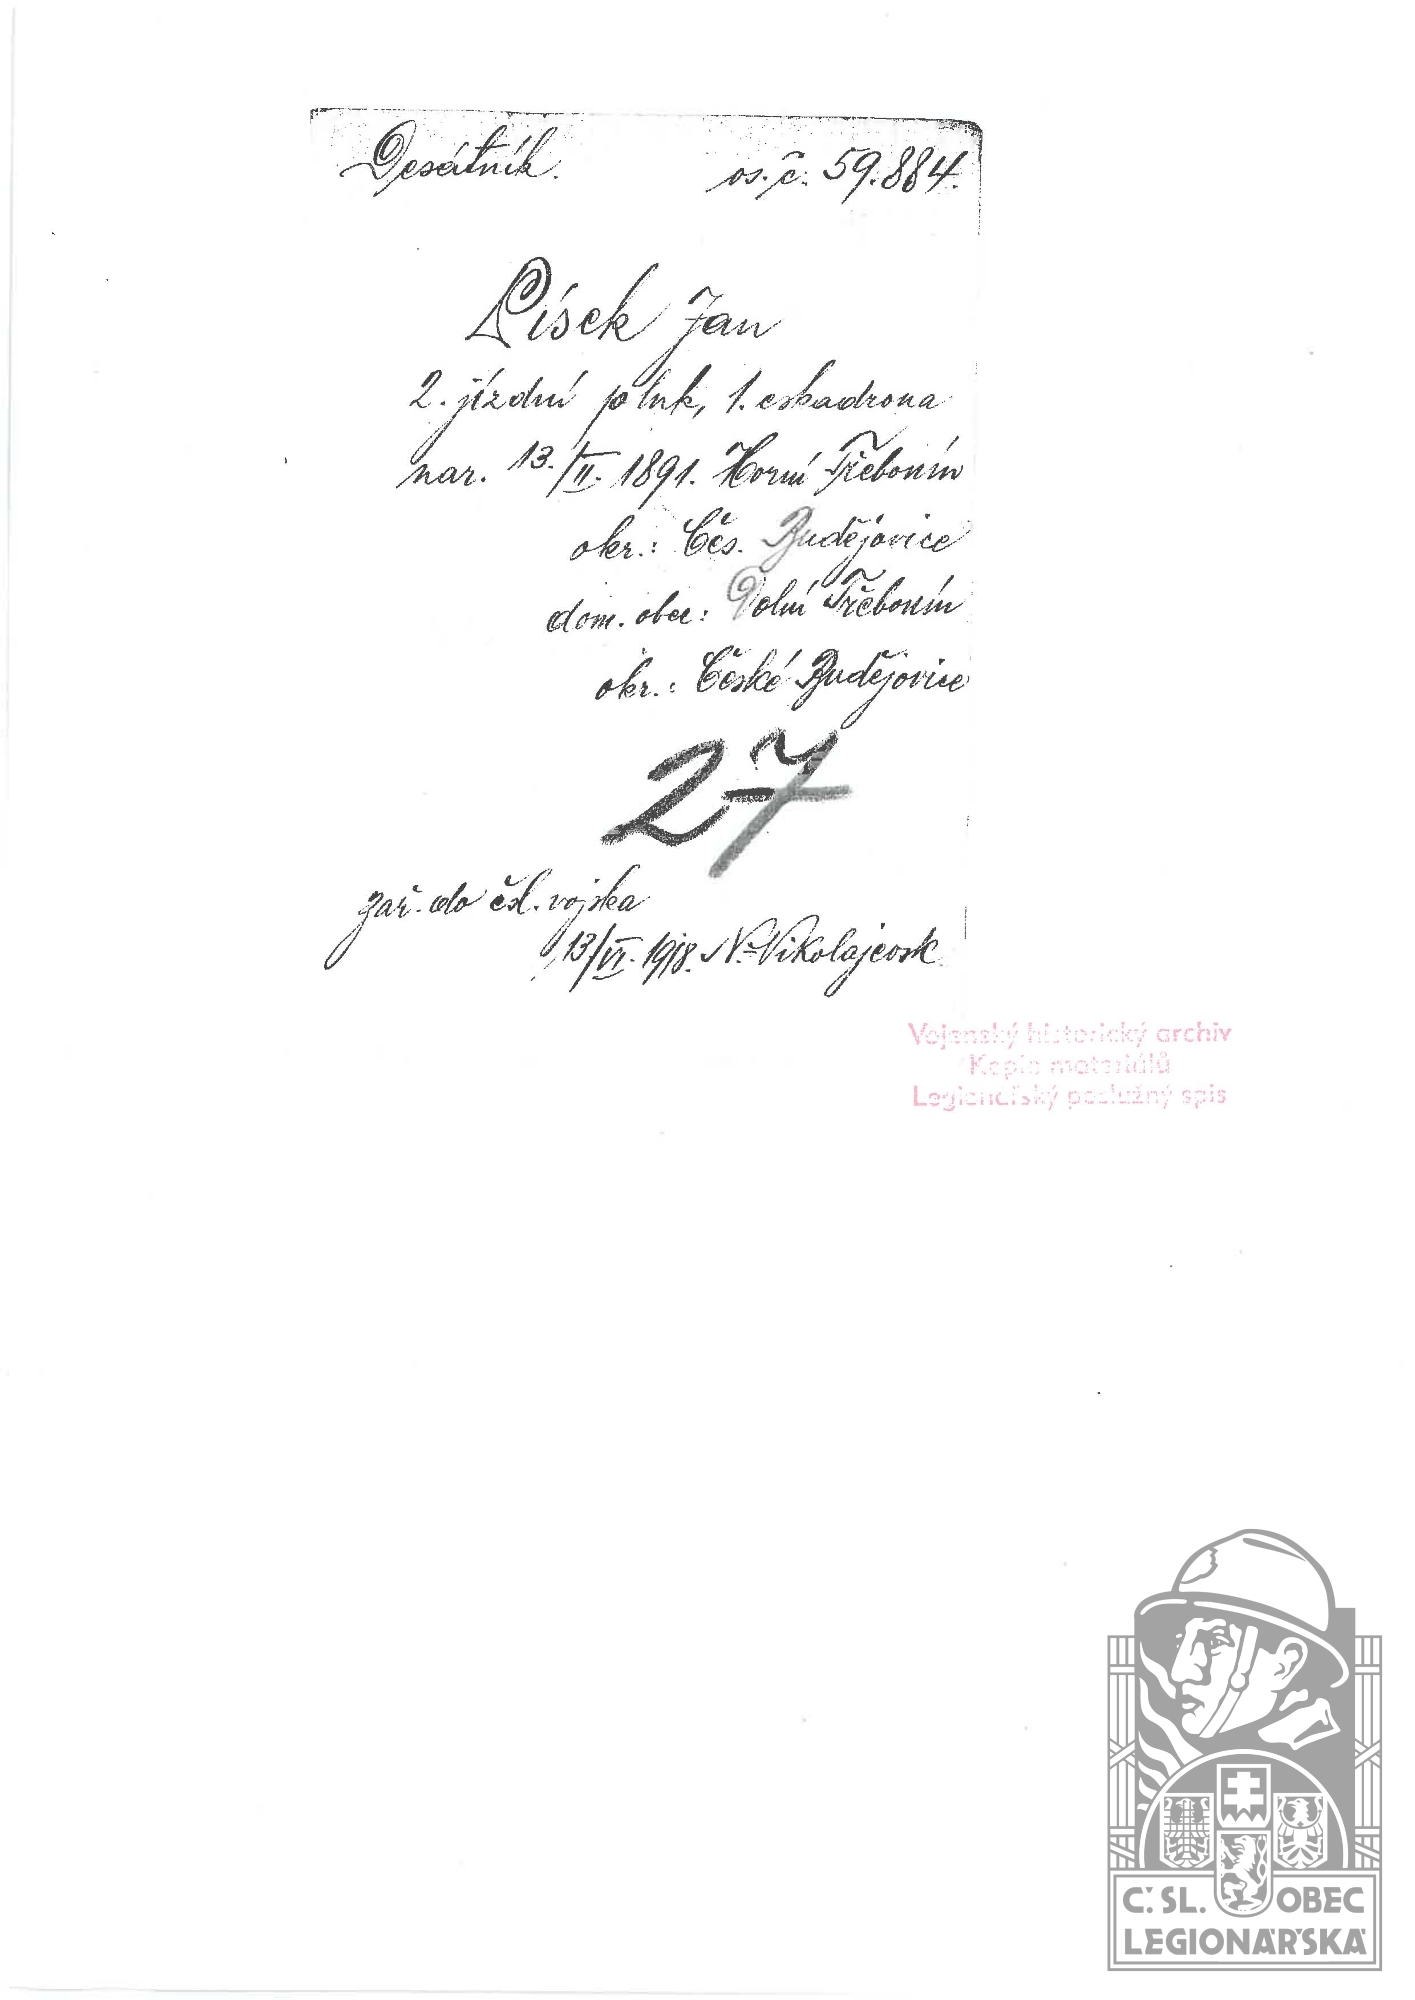 Desátník. os. č. 59.884.
Písek Jan
2. jízdní pluk, 1. eskadrona
nar. 13./II. 1891. Horní Třebonín
okr.: Čes. Budějovice
dom. obec: Dolní Třebonín
okr.: České Budějovice
27
zař. do čsl. vojska
13/VI. 1918. N.-Nikolajevsk
Vojenský historický archiv
Kopie materiálů
Legionářský poslužný spis
Č. SL. OBEC
LEGIONÁŘSKÁ